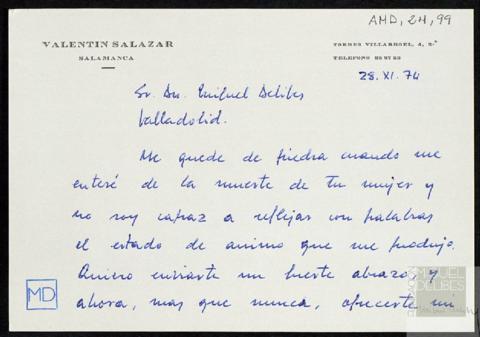 AMD, 24, 99
VALENTIN SALAZAR
SALAMANCA
TORRES VILLARROEL, 4, 2.º
TELEFONO
28. XI. 74
Sr. Dn. Miguel Delibes
Valladolid.
Me quede de piedra cuando me
enteré de la muerte de tu mujer y
no soy capaz a reflejar con palabras
el estado de animo que me produjo.
Quiero enviarte un fuerte abrazo, y
ahora, mas que nunca, ofrecerte mi
MD
MIGUEL
DELIBES